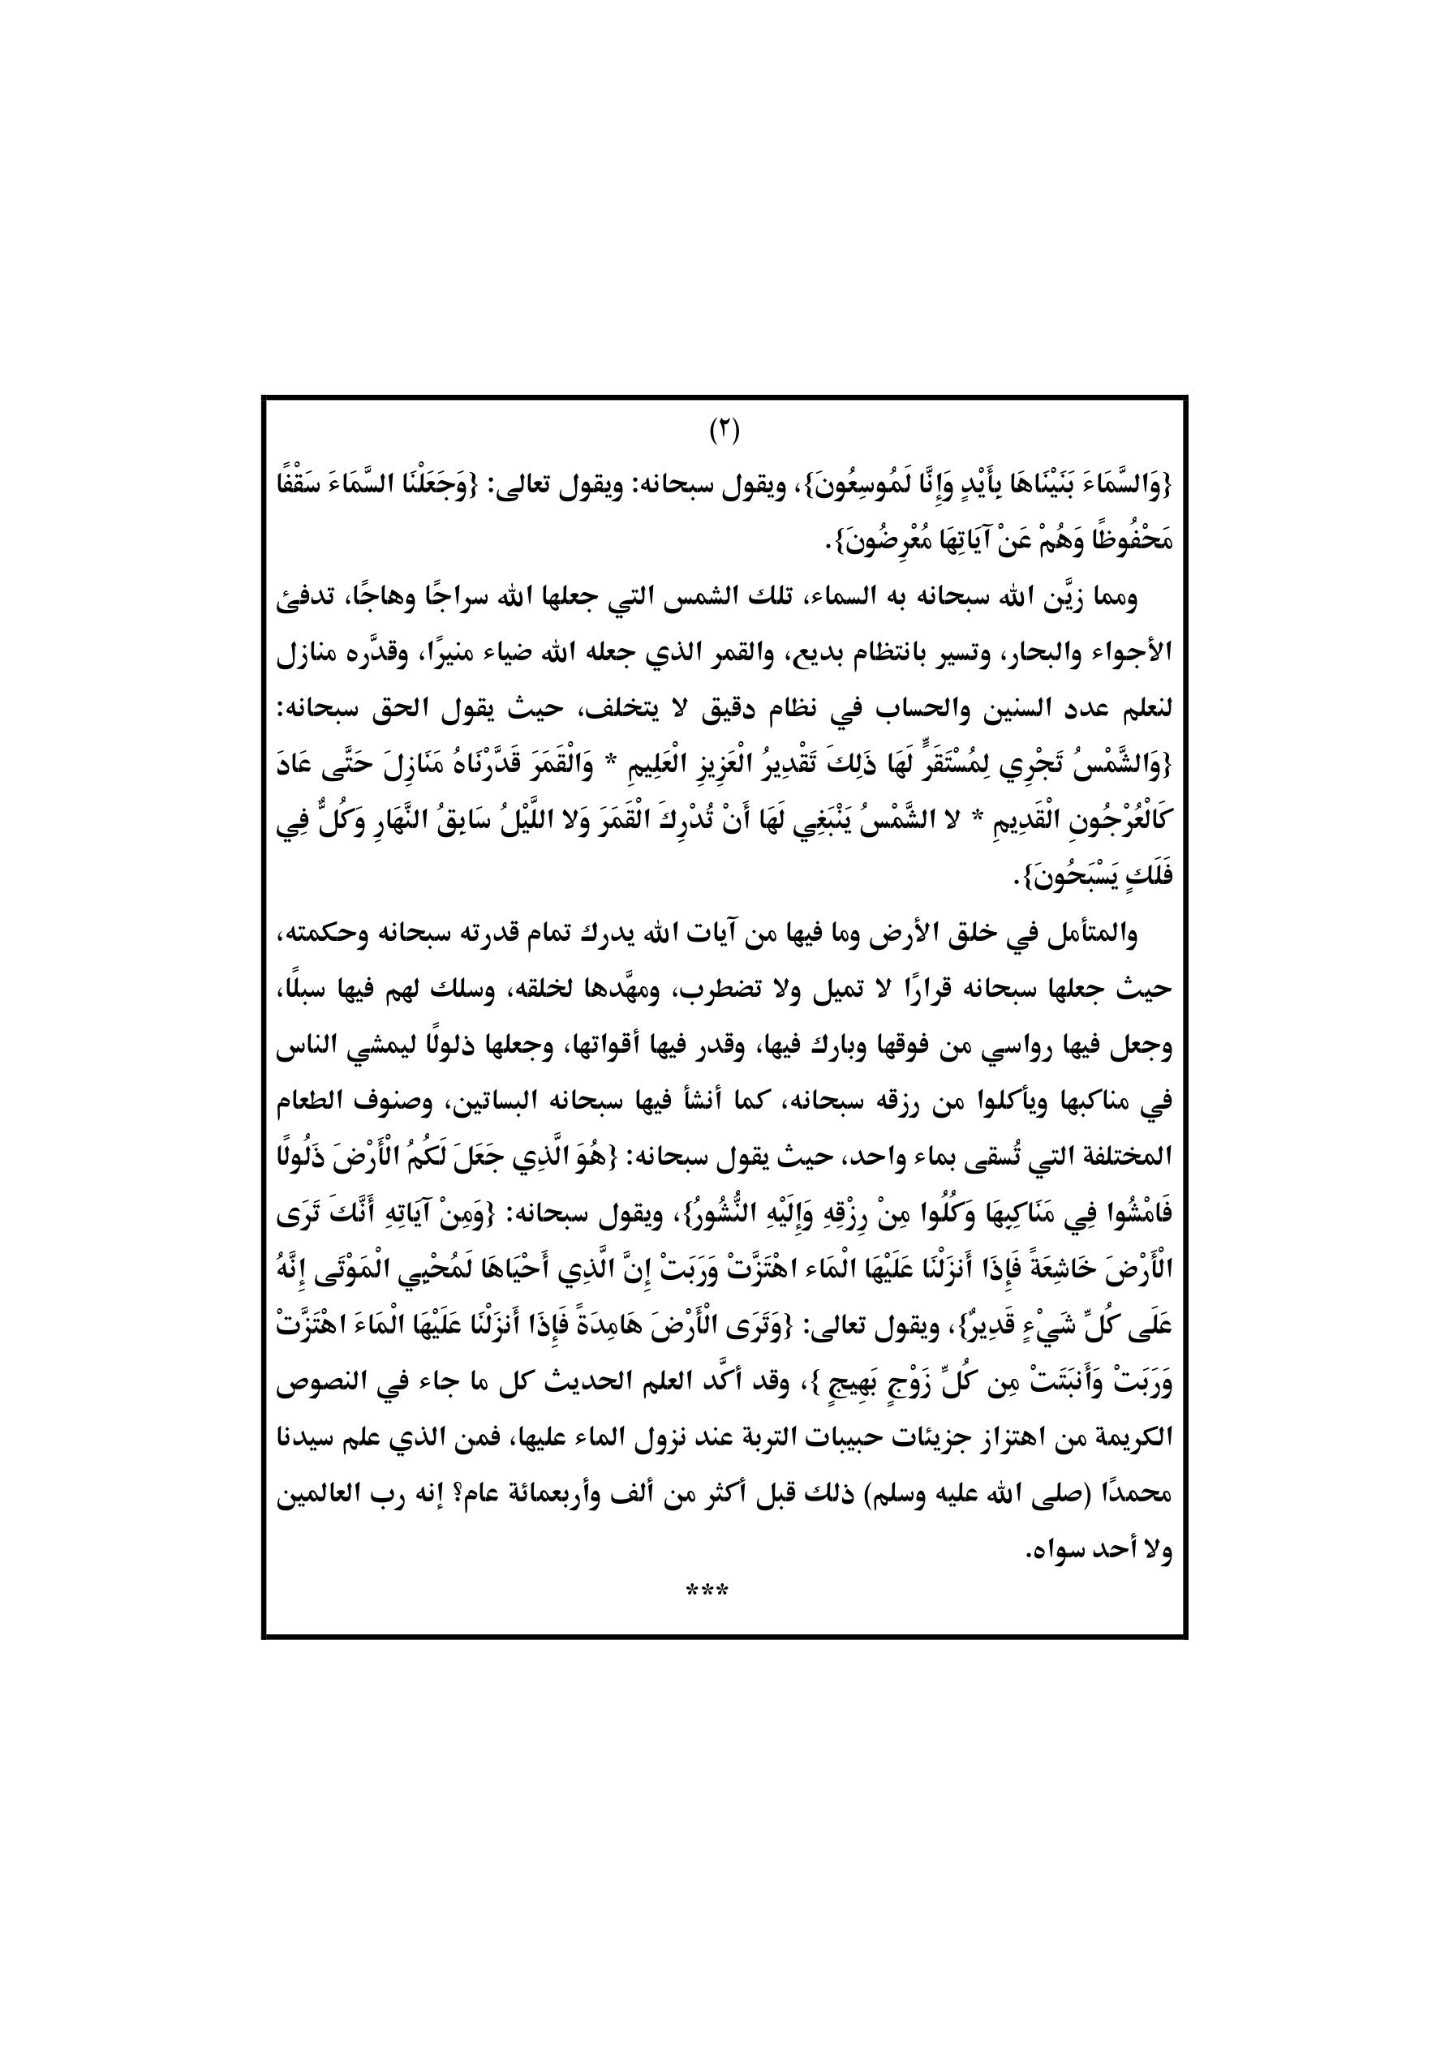 (٢)
{وَالسَّمَاءَ بَنَيْنَاهَا بِأَيْدٍ وَإِنَّا لَمُوسِعُونَ}، ويقول سبحانه: ويقول تعالى: {وَجَعَلْنَا السَّمَاءَ سَقْفًا
مَحْفُوظًا وَهُمْ عَنْ آيَاتِهَا مُعْرِضُونَ}.
ومما زيَّن الله سبحانه به السماء، تلك الشمس التي جعلها الله سراجًا وهاجًا، تدفئ
الأجواء والبحار، وتسير بانتظام بديع، والقمر الذي جعله الله ضياء منيرًا، وقدَّره منازل
لنعلم عدد السنين والحساب في نظام دقيق لا يتخلف، حيث يقول الحق سبحانه:
{وَالشَّمْسُ تَجْرِي لِمُسْتَقَرٍّ لَهَا ذَلِكَ تَقْدِيرُ الْعَزِيزِ الْعَلِيمِ * وَالْقَمَرَ قَدَّرْنَاهُ مَنَازِلَ حَتَّى عَادَ
كَالْعُرْجُونِ الْقَدِيمِ * لا الشَّمْسُ يَنْبَغِي لَهَا أَنْ تُدْرِكَ الْقَمَرَ وَلا اللَّيْلُ سَابِقُ النَّهَارِ وَكُلٌّ فِي
فَلَكٍ يَسْبَحُونَ}.
والمتأمل في خلق الأرض وما فيها من آيات الله يدرك تمام قدرته سبحانه وحكمته،
حيث جعلها سبحانه قرارًا لا تميل ولا تضطرب، ومهَّدها لخلقه، وسلك لهم فيها سبلًا،
وجعل فيها رواسي من فوقها وبارك فيها، وقدر فيها أقواتها، وجعلها ذلولًا ليمشي الناس
في مناكبها ويأكلوا من رزقه سبحانه، كما أنشأ فيها سبحانه البساتين، وصنوف الطعام
المختلفة التي تُسقى بماء واحد، حيث يقول سبحانه: {هُوَ الَّذِي جَعَلَ لَكُمُ الْأَرْضَ ذَلُولًا
فَامْشُوا فِي مَنَاكِبِهَا وَكُلُوا مِنْ رِزْقِهِ وَإِلَيْهِ النُّشُورُ}، ويقول سبحانه: {وَمِنْ آيَاتِهِ أَنَّكَ تَرَى
الْأَرْضَ خَاشِعَةً فَإِذَا أَنزَلْنَا عَلَيْهَا الْمَاء اهْتَزَّتْ وَرَبَتْ إِنَّ الَّذِي أَحْيَاهَا لَمُحْيِي الْمَوْتَى إِنَّهُ
عَلَى كُلِّ شَيْءٍ قَدِيرٌ}، ويقول تعالى: {وَتَرَى الْأَرْضَ هَامِدَةً فَإِذَا أَنزَلْنَا عَلَيْهَا الْمَاءَ اهْتَزَّتْ
وَرَبَتْ وَأَنبَتَتْ مِن كُلِّ زَوْجٍ بَهِيجٍ }، وقد أكَّد العلم الحديث كل ما جاء في النصوص
الكريمة من اهتزاز جزيئات حبيبات التربة عند نزول الماء عليها، فمن الذي علم سيدنا
محمدًا (صلى الله عليه وسلم) ذلك قبل أكثر من ألف وأربعمائة عام؟ إنه رب العالمين
ولا أحد سواه.
***